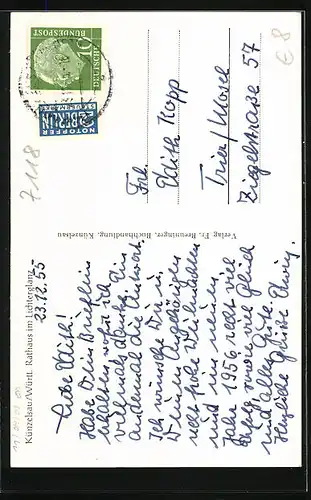 Künzelsau/Württ. Rathaus im Lichterglanz
23.12.55
Liebe Edith!
Habe Dein Brieflein
erhalten wofür ich
vielmals danke. Ein
andermal die Antwort.
Ich wünsche Dir u.
Deinen Angehörigen
recht frohe Weihnachten
und im neuen
Jahr 1956 recht viel
Segen sowie viel Glück
und alles Gute.
Herzliche Grüße
Verlag Fr. Breuninger, Buchhandlung, Künzelsau
DEUTSCHE
BUNDESPOST
10
NOTOPFER
2 BERLIN
STEUERMARKE
Frl.
Edith Kopp
Trier/Mosel
Ziegelstraße 57
€ 8
7118